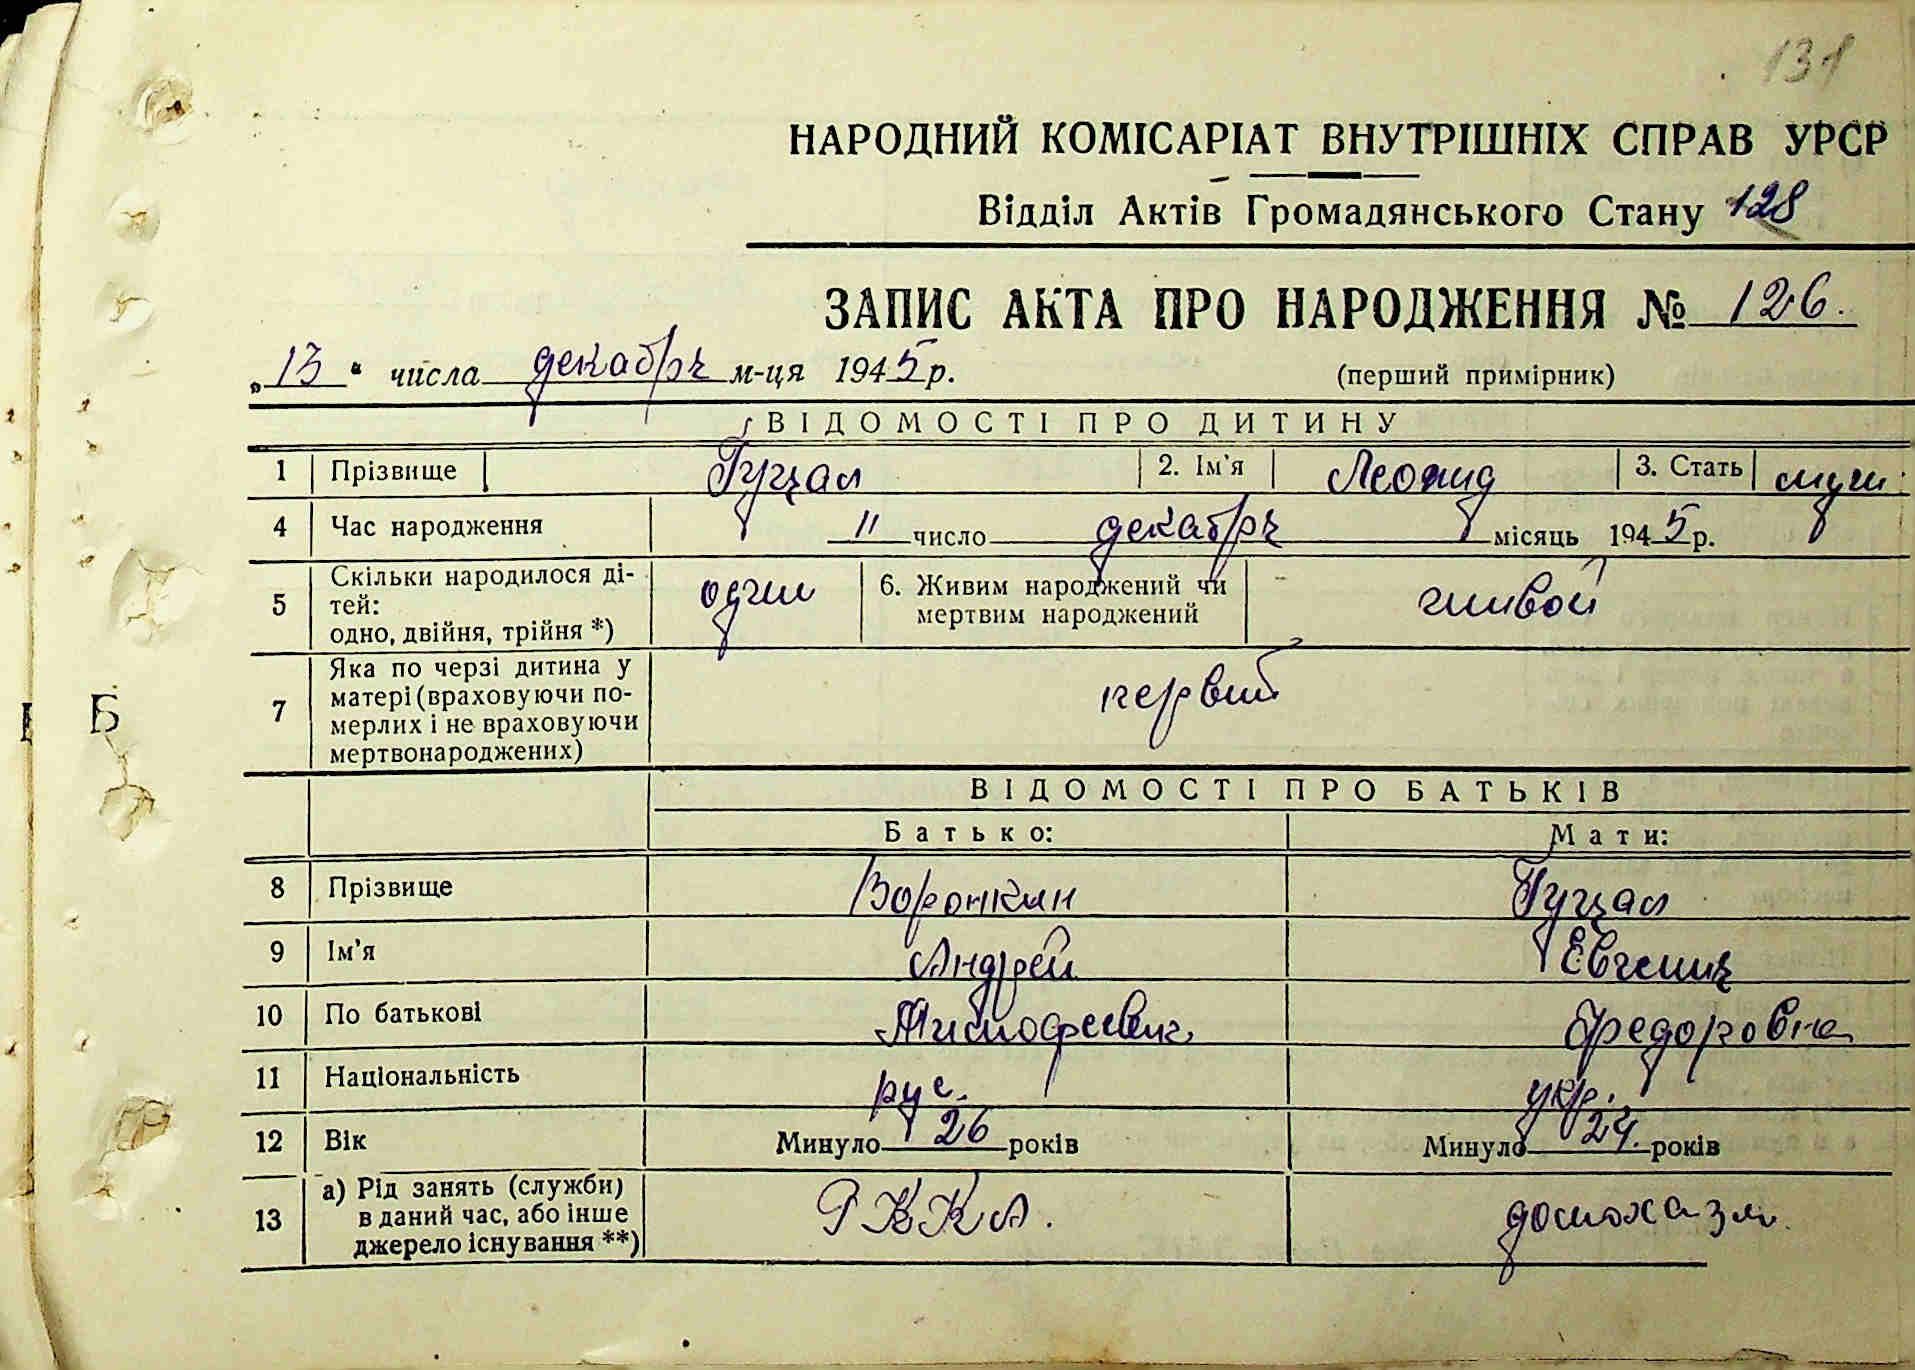 131
НАРОДНИЙ КОМІСАРІАТ ВНУТРІШНІХ СПРАВ УРСР
Відділ Актів Громадянського Стану 128
ЗАПИС АКТА ПРО НАРОДЖЕННЯ № 126.
„13“ числа декабря м-ця 1945 р. (перший примірник)
ВІДОМОСТІ ПРО ДИТИНУ
1 Прізвище Гуцал 2. Ім'я Леонид 3. Стать муж.
4 Час народження 11 число декабря місяць 1945 р.
5 Скільки народилося ді-
тей:
одно, двійня, трійня *) один 6. Живим народжений чи
мертвим народжений живой
7 Яка по черзі дитина у
матері (враховуючи по-
мерлих і не враховуючи
мертвонароджених) первый
ВІДОМОСТІ ПРО БАТЬКІВ
Батько: Мати:
8 Прізвище Воронкин Гуцал
9 Ім'я Андрей Евгения
10 По батькові Тимофеевич Федоровна
11 Національність рус. укр.
12 Вік Минуло 26 років Минуло 24. років
13 а) Рід занять (служби)
в даний час, або інше
джерело існування **) РККА. домохазяй.
Б